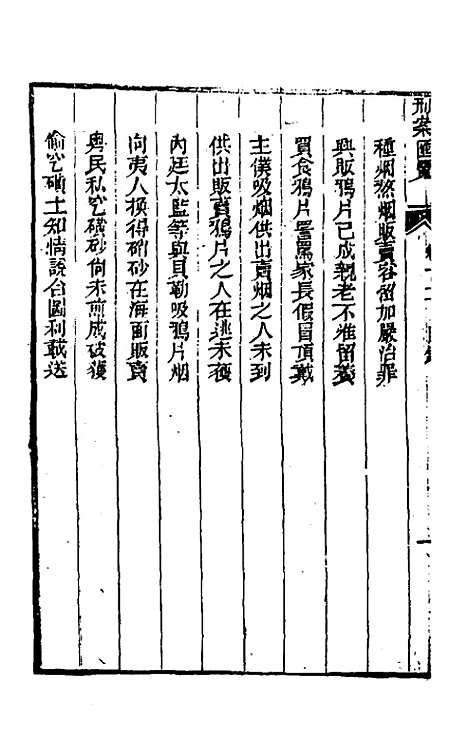 刑案匯覽
種烟熬烟販賣容留加嚴治罪
興販鴉片已成親老不准留養
買食鴉片詈罵家長假冒頂戴
主僕吸烟供出賣烟之人未到
供出販賣鴉片之人在逃未獲
內廷太監等與貝勒吸鴉片烟
向夷人換得硇砂在海面販賣
奥民私挖磺砂尚未煎成破獲
偷挖磺土知情說合圖利載送